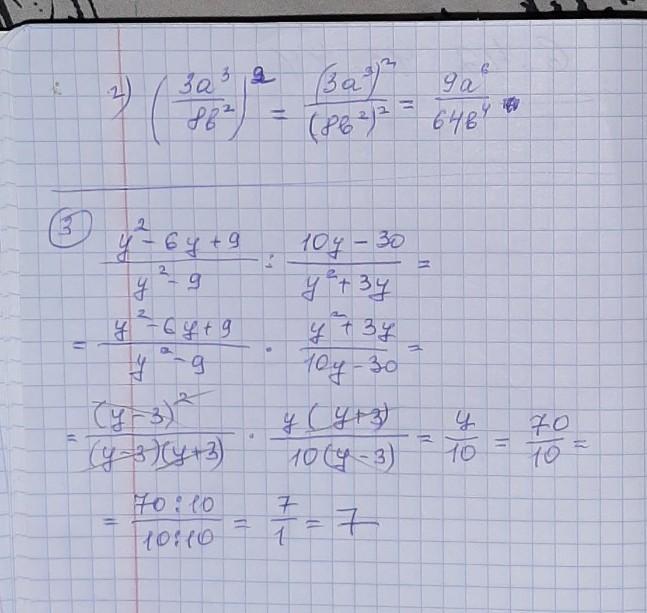 2) (3a³/8b²)² = (3a³)²/(8b²)² = 9a⁶/64b⁴
③ y² - 6y + 9/y² - 9 : 10y - 30/y² + 3y =
= y² - 6y + 9/y² - 9 · y² + 3y/10y - 30 =
= (y - 3)²/(y - 3)(y + 3) · y(y + 3)/10(y - 3) = y/10 = 70/10 =
= 70:10/10:10 = 7/1 = 7